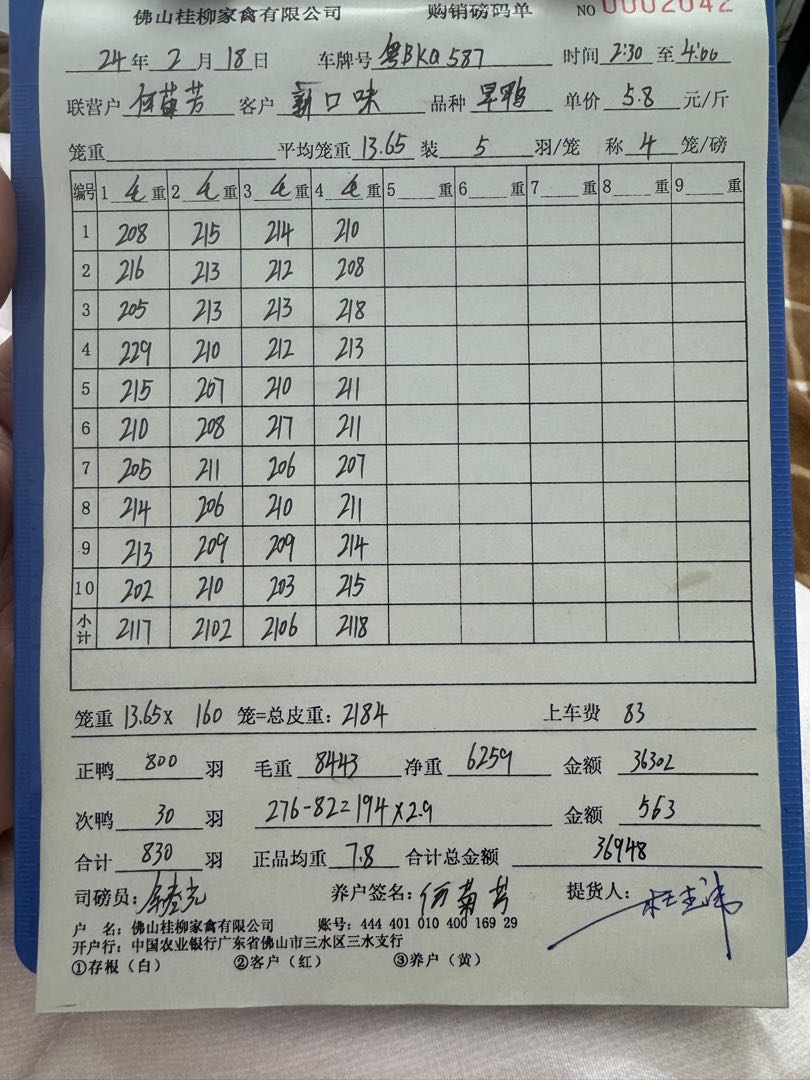 佛山桂柳家禽有限公司 购销磅码单 NO 0002042
24年2月18日 车牌号 粤BKQ587 时间2:30至4:00
联营户 何菊芳 客户 新口味 品种 旱鸭 单价 5.8 元/斤
笼重 平均笼重 13.65 装 5 羽/笼 称 4 笼/磅
编号 1 毛 重 2 毛 重 3 毛 重 4 毛 重 5 重 6 重 7 重 8 重 9 重
1 208 215 214 210
2 216 213 212 208
3 205 213 213 218
4 229 210 212 213
5 215 207 210 211
6 210 208 217 211
7 205 211 206 207
8 214 206 210 211
9 213 209 209 214
10 202 210 203 215
小计 2117 2102 2106 2118
笼重 13.65× 160 笼=总皮重:2184 上车费 83
正鸭 800 羽 毛重 8443 净重 6259 金额 36302
次鸭 30 羽 276-82=194×2.9 金额 563
合计 830 羽 正品均重 7.8 合计总金额 36948
司磅员: 养户签名:何菊芳 提货人:
户 名:佛山桂柳家禽有限公司 账号:444 401 010 400 169 29
开户行:中国农业银行广东省佛山市三水区三水支行
①存根(白) ②客户(红) ③养户(黄)